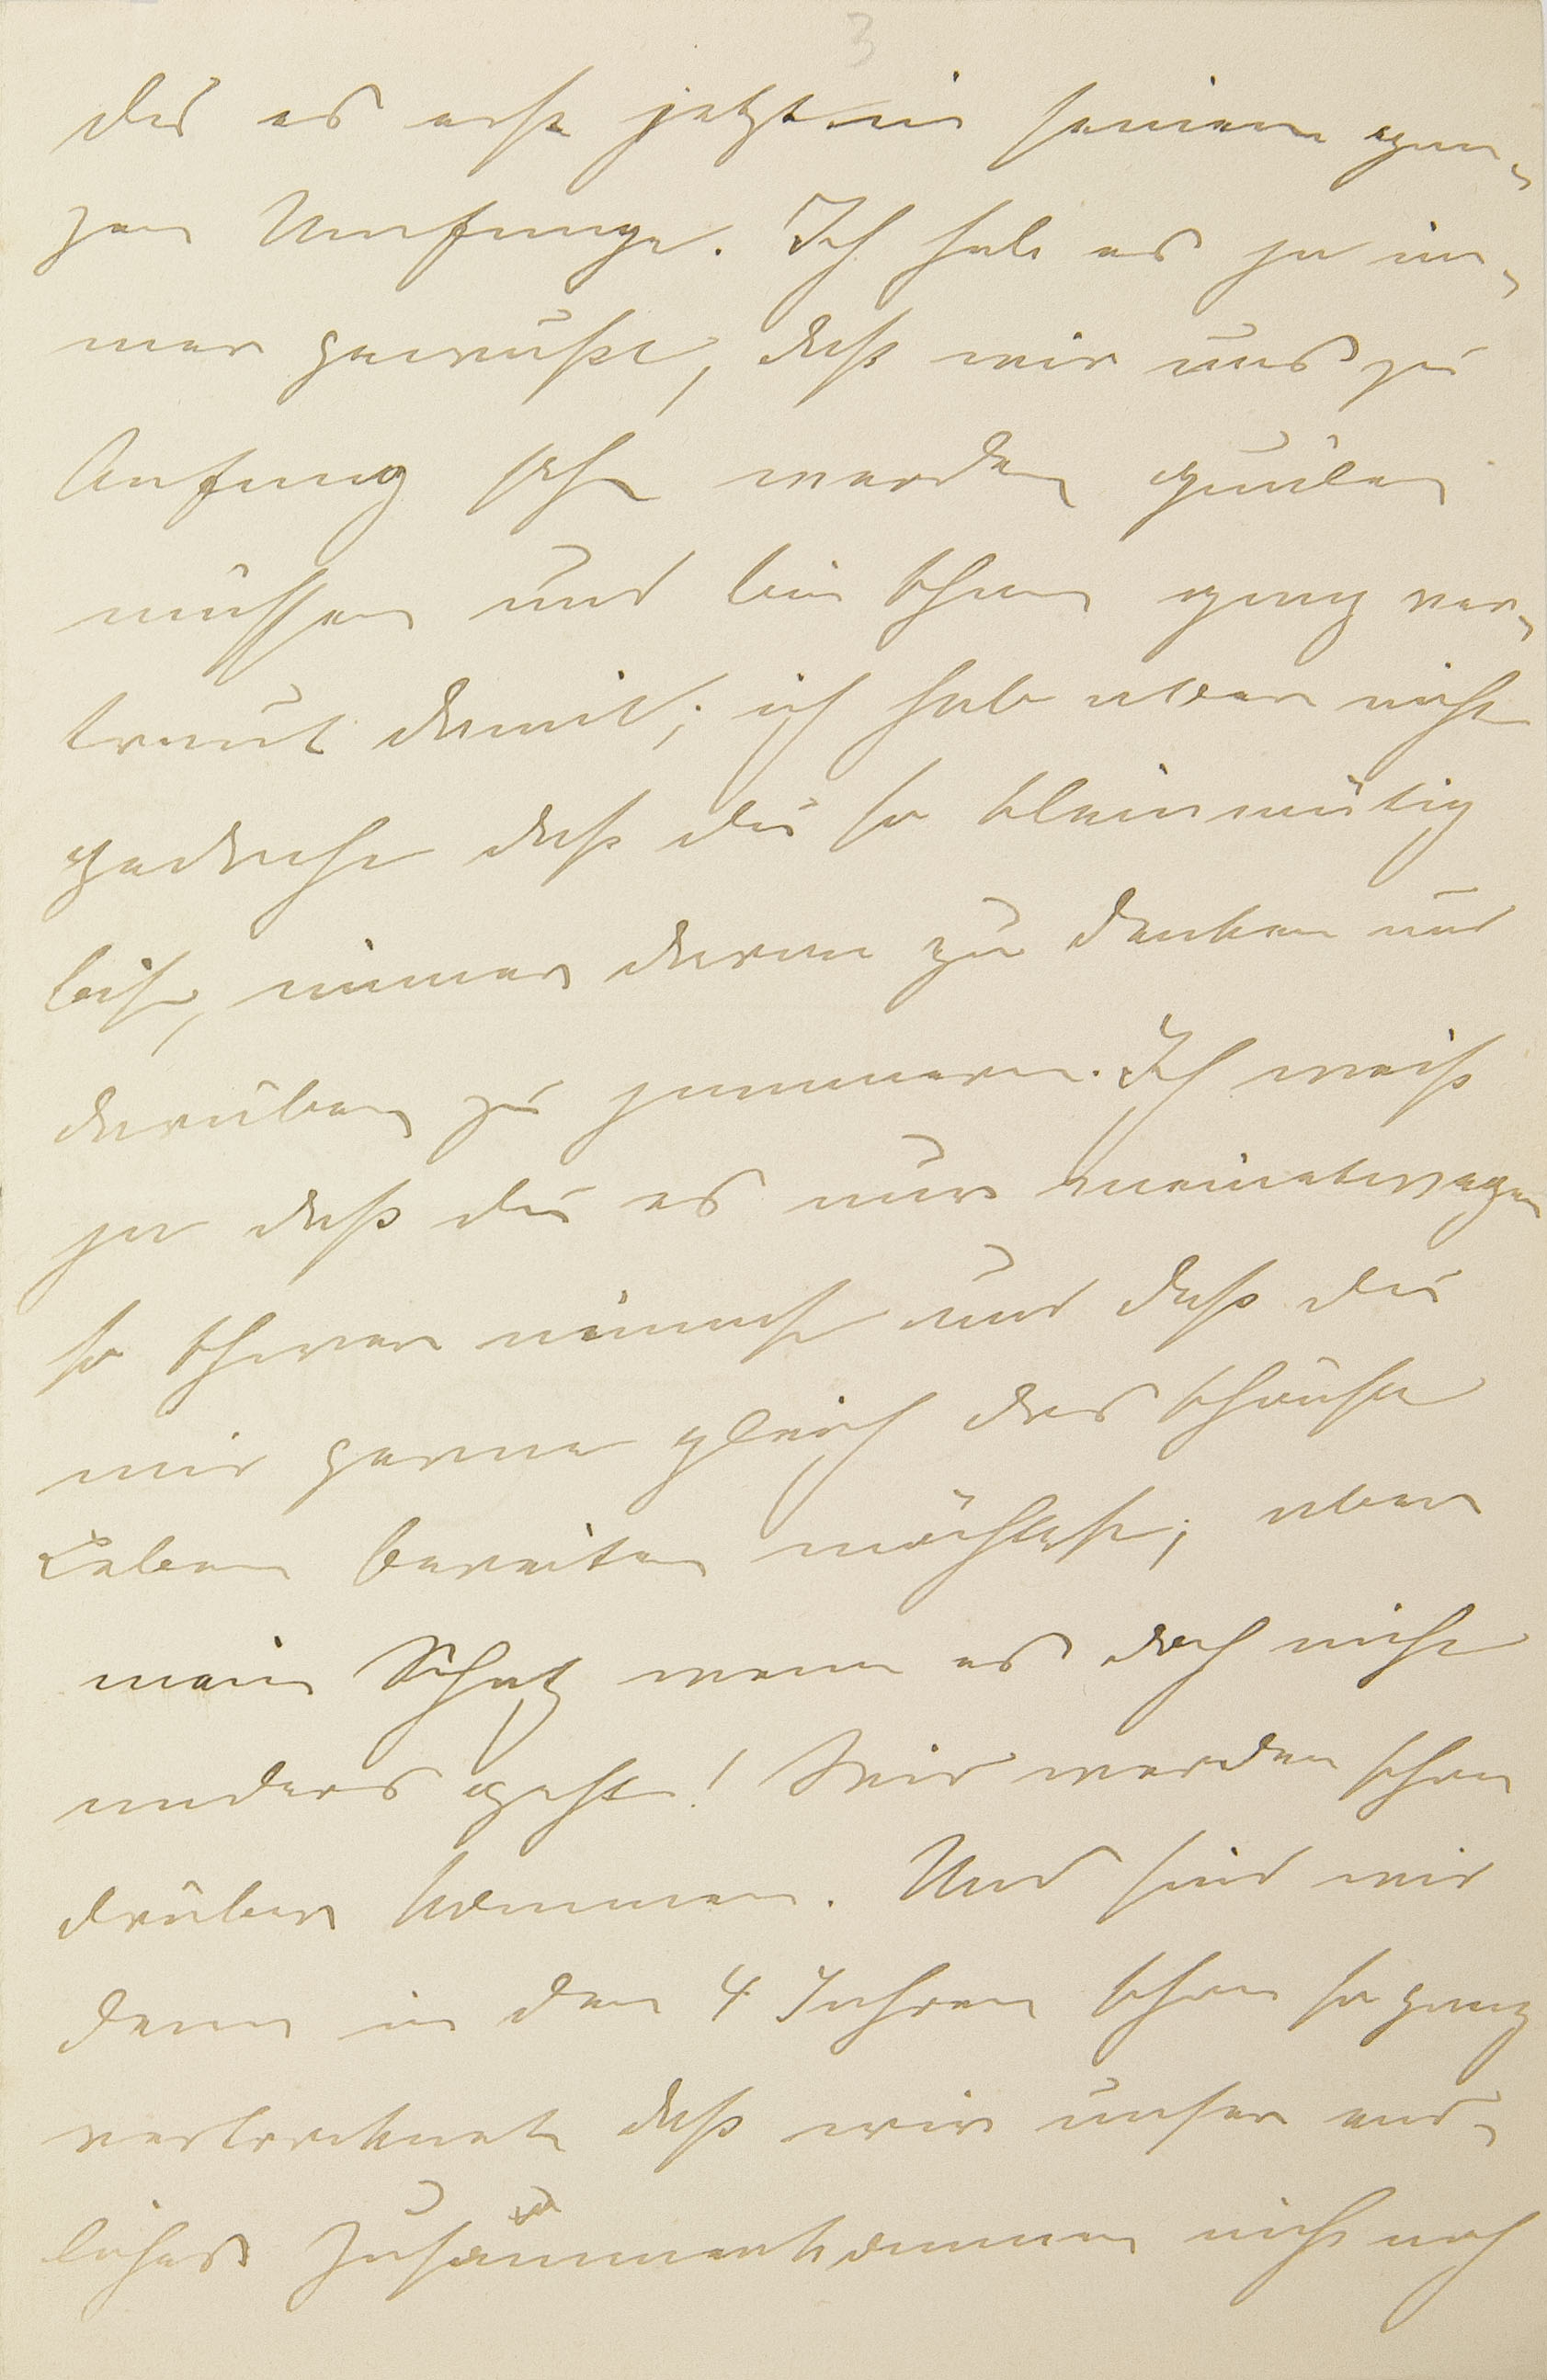 3
du es erst jetzt in seinem gan-
zen Umfange. Ich hab es ja im-
mer gewußt, daß wir uns zu
Anfang sehr werden quälen
müssen und bin schon ganz ver-
traut damit; ich hab aber nicht
gedacht daß du so kleinmütig
bist, immer daran zu denken und
darüber zu jammern. Ich weiß
ja daß du es nur meinetwegen
so schwer nimmst und daß du
mir gerne gleich das schönste
Leben bereiten möchtest; aber
mein Schatz wenn es doch nicht
anders geht! Wir werden schon
drüber kommen. Und sind wir
denn in den 4 Jahren schon so ganz
vertrocknet daß wir unser end-
liches Zusammenkommen nicht noch